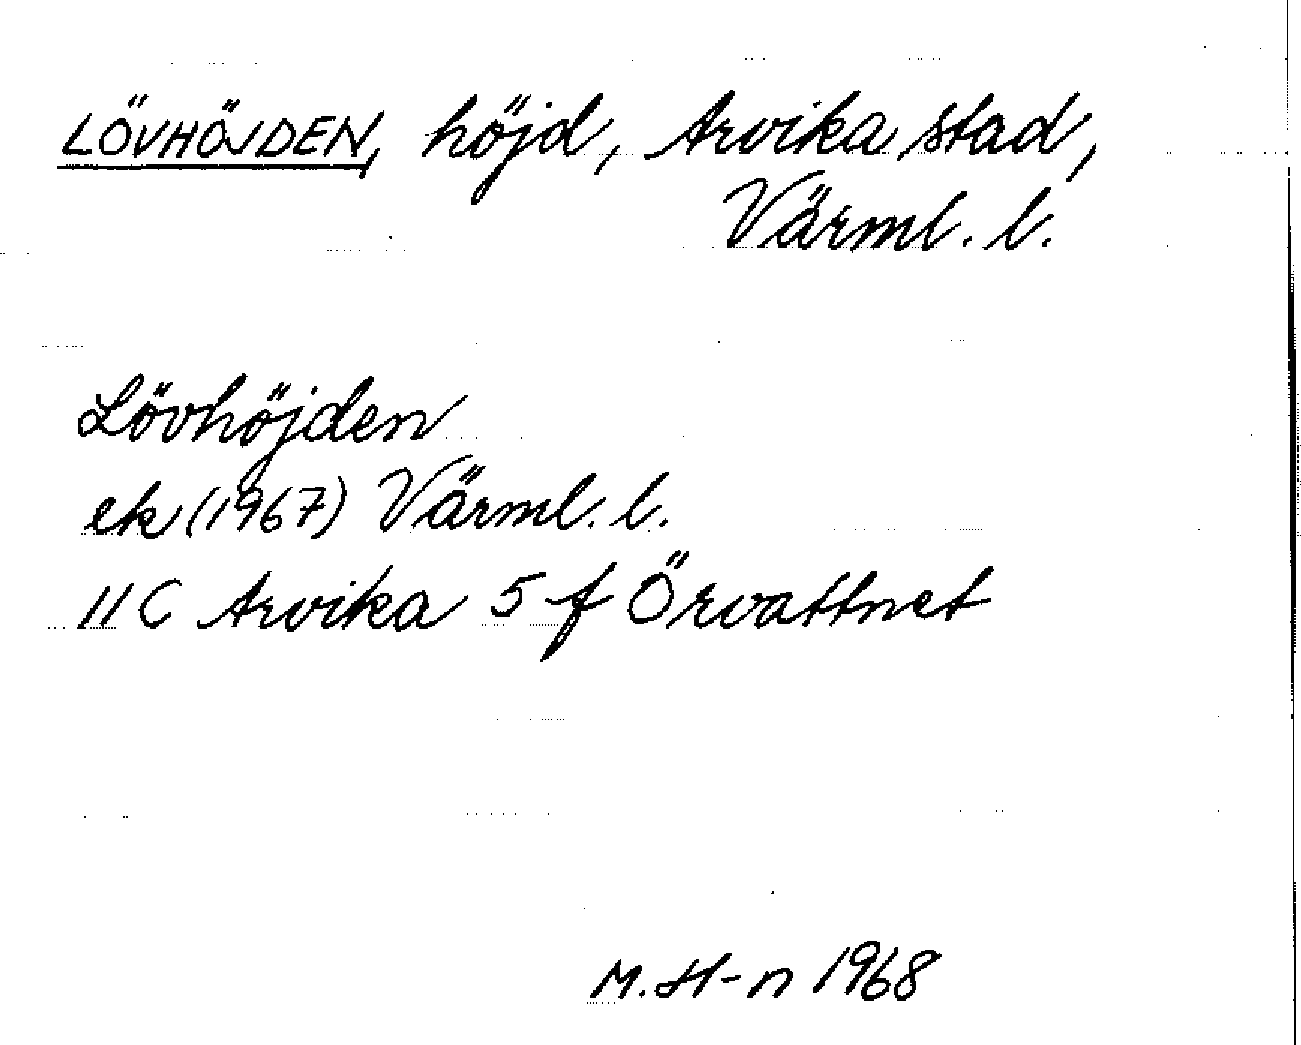 LÖVHÖJDEN, höjd, Arvika stad,
Värml. l.
Lövhöjden
ek (1967) Värml. l.
11 C Arvika 5 f Örvattnet
M. H-n 1968